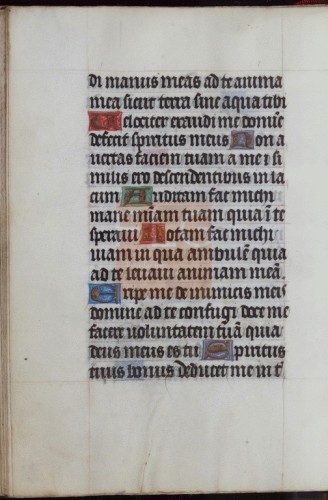 di manus meas ad te anima
mea sicut terra sine aqua tibi
Velociter exaudi me domine
defecit spiritus meus Non a
uertas faciem tuam a me ⁊ si
milis ero descendentibus in la
cum Auditam fac michi
mane mīam tuam quia ī te
speraui Notam fac michi
uiam in qua ambulē quia
ad te leuaui animam meā.
Eripe me de inimicis meis
domine ad te confugi doce me
facere voluntatem tuā quia
deus meus es tu Spiritus
tuus bonus deducet me in t̄